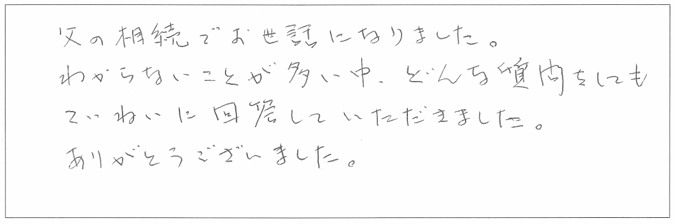 父の相続でお世話になりました。
わからないことが多い中、どんな質問をしても
ていねいに回答していただきました。
ありがとうございました。